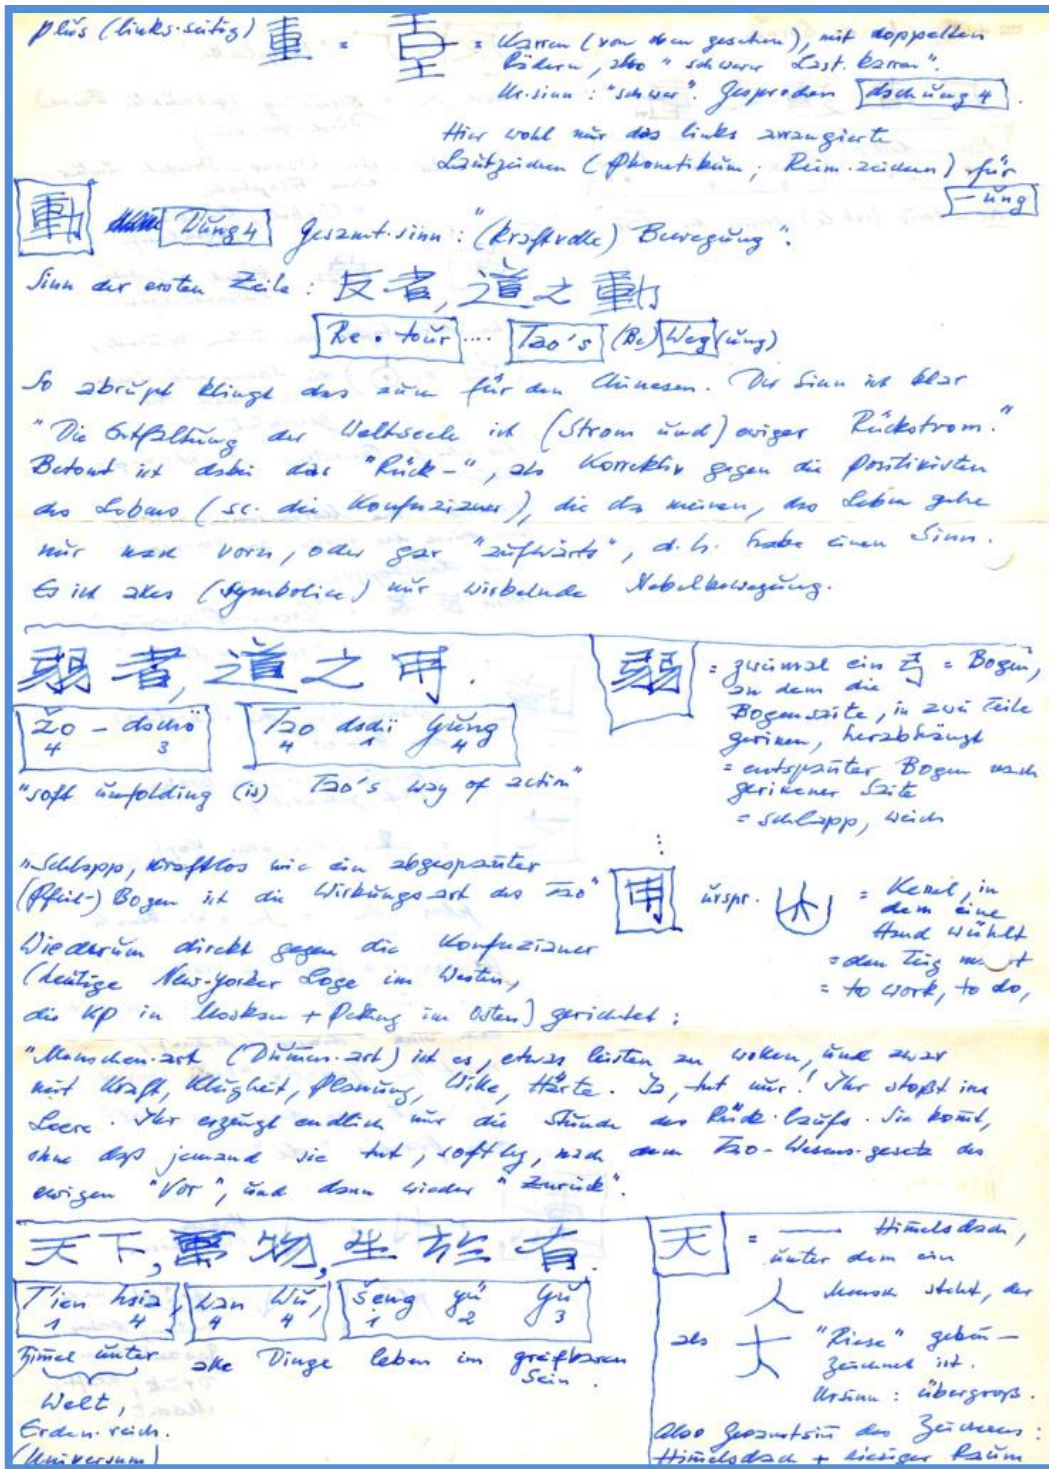 plus (links-seitig) 重 = = Karren (von oben gesehen), mit doppelten
Rädern, also "schwerer Last-karren".
Ur-sinn: "schwer". Gesprochen dschung 4.
Hier wohl nur das links arrangierte
Lautzeichen (Phonetikum; Reim-zeichen) für
-ung
動 Dung 4 Gesamt-sinn: "(kraftvolle) Bewegung".
Sinn der ersten Zeile: 反者, 道之動
Re-tour .... Tao's (Be)Weg(ung)
So abrupt klingt das auch für den Chinesen. Der Sinn ist klar
"Die Entfaltung der Weltseele ist (Strom und) ewiger Rückstrom."
Betont ist dabei das "Rück-", als Korrektiv gegen die Positivisten
des Lebens (sc. die Konfuzianer), die da meinen, das Leben gehe
nur nach vorn, oder gar "aufwärts", d.h. habe einen Sinn.
Es ist alles (symbolice) nur wirbelnde Nebelbewegung.
弱者, 道之用.
žo - dschö Tao dschï yung
4 3 4 1 4
"soft unfolding (is) Tao's way of action"
弱 = zweimal ein 弓 = Bogen,
an dem die
Bogenseite, in zwei Teile
gerissen, herabhängt
= entspannter Bogen nach
gerissener Saite
= schlapp, weich
"Schlapp, kraftlos wie ein abgespannter
(Pfeil-) Bogen ist die Wirkungsart des Tao"
用 urspr. = Kessel, in
dem eine
Hand wühlt
= den Teig
= to work, to do,
Wiederum direkt gegen die Konfuzianer
(heutige New-Yorker Loge im Westen,
die KP in Moskau + Peking im Osten) gerichtet:
"Menschen-art (Dumm-art) ist es, etwas leisten zu wollen, und zwar
mit Kraft, Klugheit, Planung, Wille, Härte. Ja, tut nur! Ihr stoßt ins
Leere. Ihr erzeugt endlich nur die Stunde des Rück-laufs. Sie kommt,
ohne daß jemand sie tut, softly, nach dem Tao-Wesens-gesetz des
ewigen "Vor", und dann wieder "Zurück".
天下, 萬物, 生於有.
T'ien hsia, wan wu, šeng yü yu
1 4 4 4 1 2 3
Himmel unter alle Dinge leben im greifbaren
Sein.
Welt,
Erden-reich.
(Universum)
天 = — Himmelsdach,
unter dem ein
人 Mensch steht, der
als 大 "Riese" gekenn-
zeichnet ist.
Ursinn: übergroß.
Also Gesamtsinn des Zeichens:
Himmelsdach + riesiger Raum